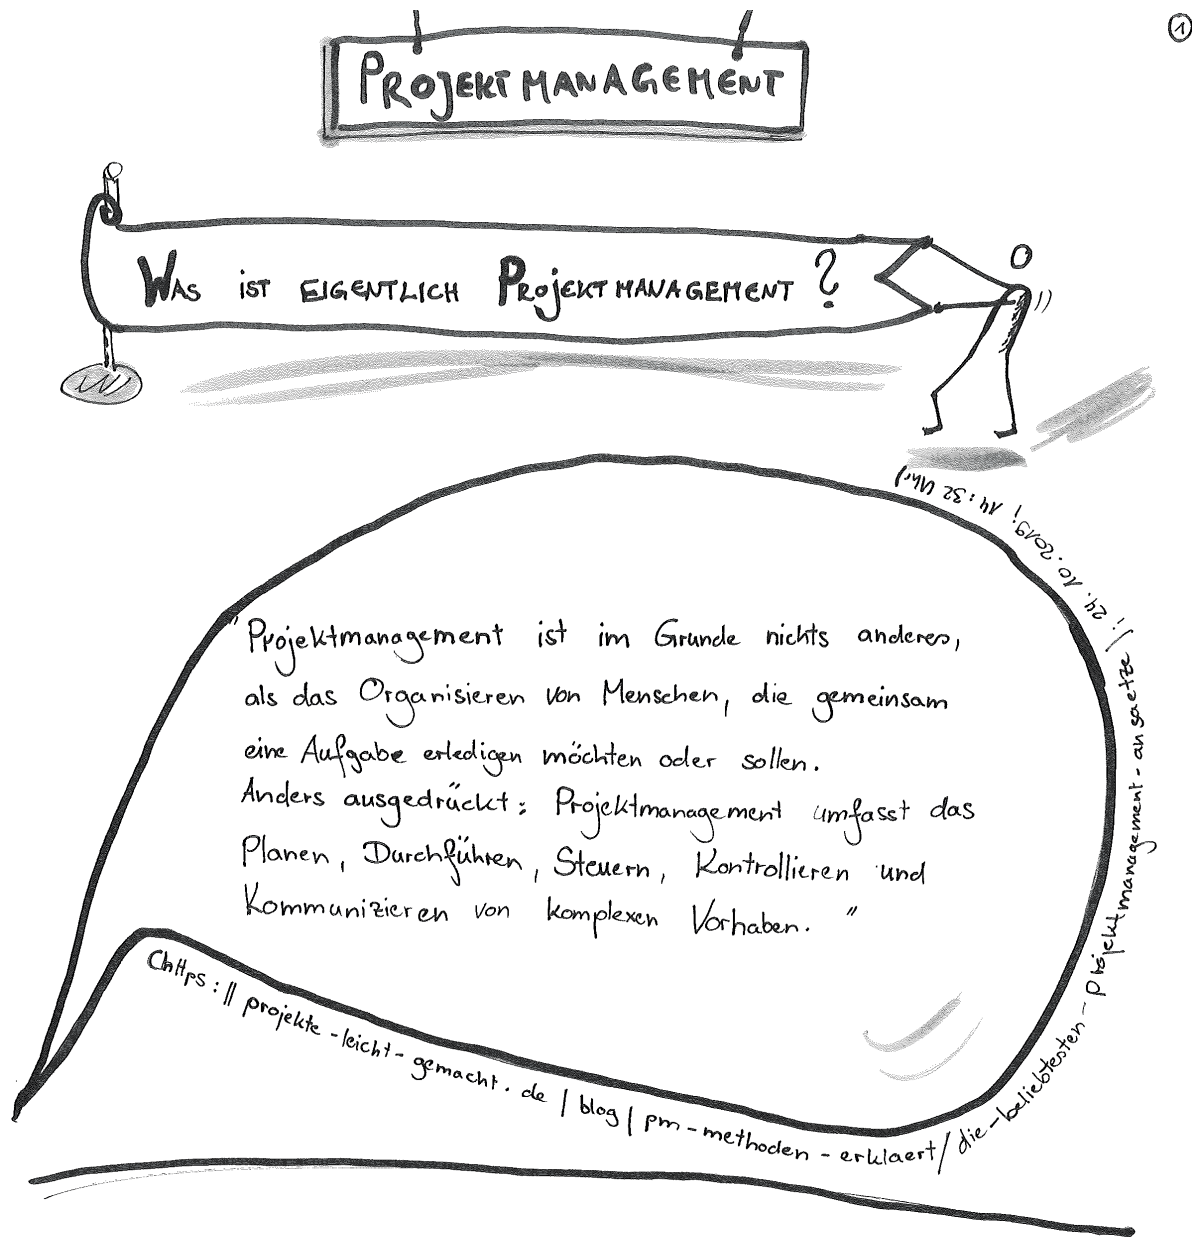 ①
PROJEKTMANAGEMENT
WAS IST EIGENTLICH PROJEKTMANAGEMENT ?
"Projektmanagement ist im Grunde nichts anderes,
als das Organisieren von Menschen, die gemeinsam
eine Aufgabe erledigen möchten oder sollen.
Anders ausgedrückt: Projektmanagement umfasst das
Planen, Durchführen, Steuern, Kontrollieren und
Kommunizieren von komplexen Vorhaben."
(https://projekte-leicht-gemacht.de/blog/pm-methoden-erklaert/die-beliebtesten-projektmanagement-ansaetze/; 24.10.2019; 14:32 Uhr)